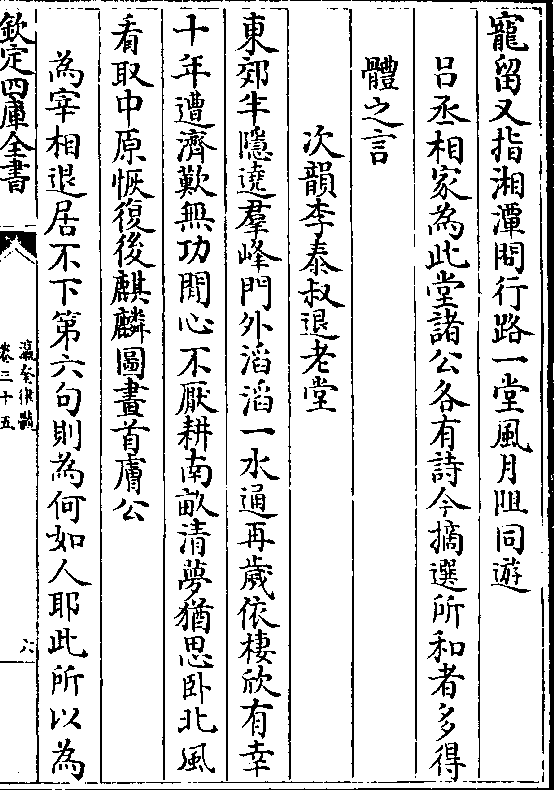 寵留又指湘潭問行路一堂風月阻同遊
吕丞相家為此堂諸公各有詩今摘選所和者多得
體之言
次韻李泰叔退老堂
東郊半隱遶羣峰門外滔滔一水通再歲依棲欣有幸
十年遭濟歎無功閒心不厭耕南畝清夢猶思卧北風
看取中原恢復後麒麟圖畫首膚公
為宰相退居不下第六句則為何如人耶此所以為
欽定四庫全書
瀛奎律髓
卷三十五
六